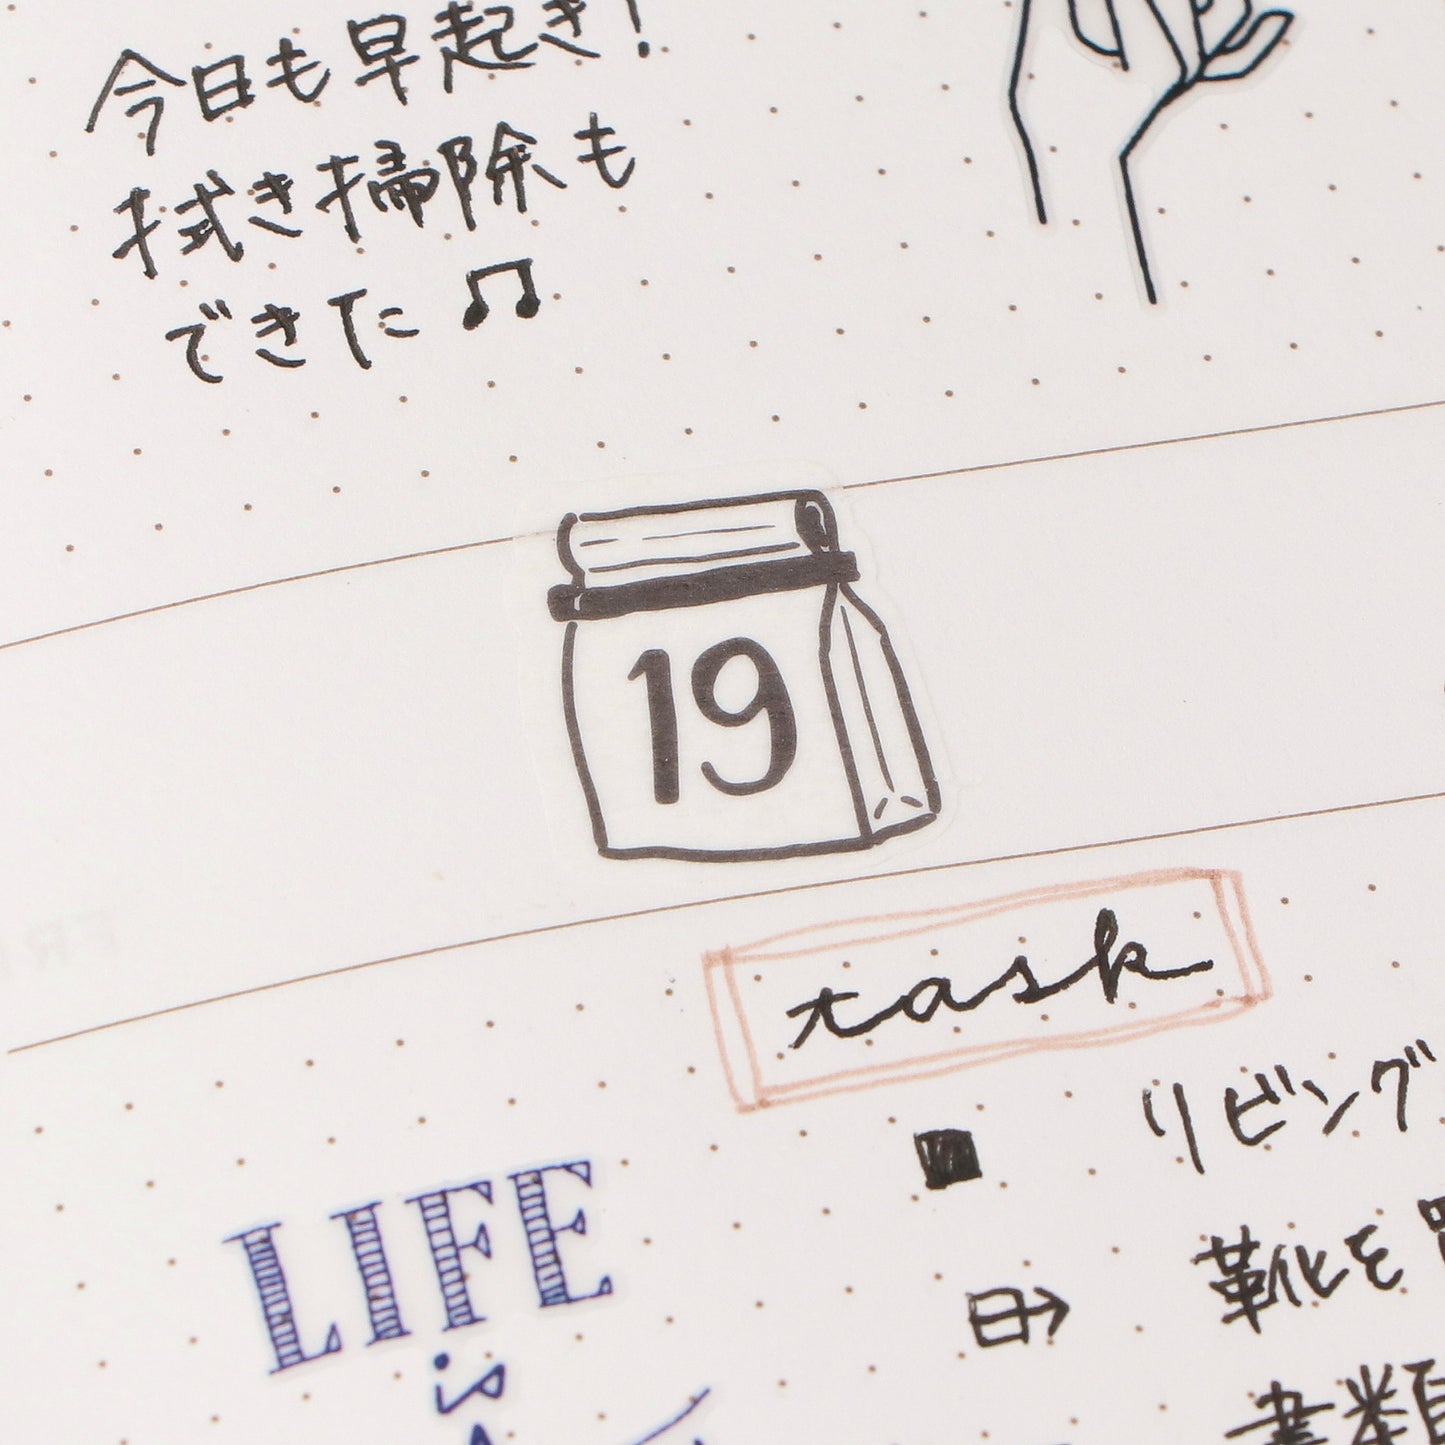 今日も早起き!
拭き掃除も
できた♫
19
task
LIFE
is
リビング
靴を
書類